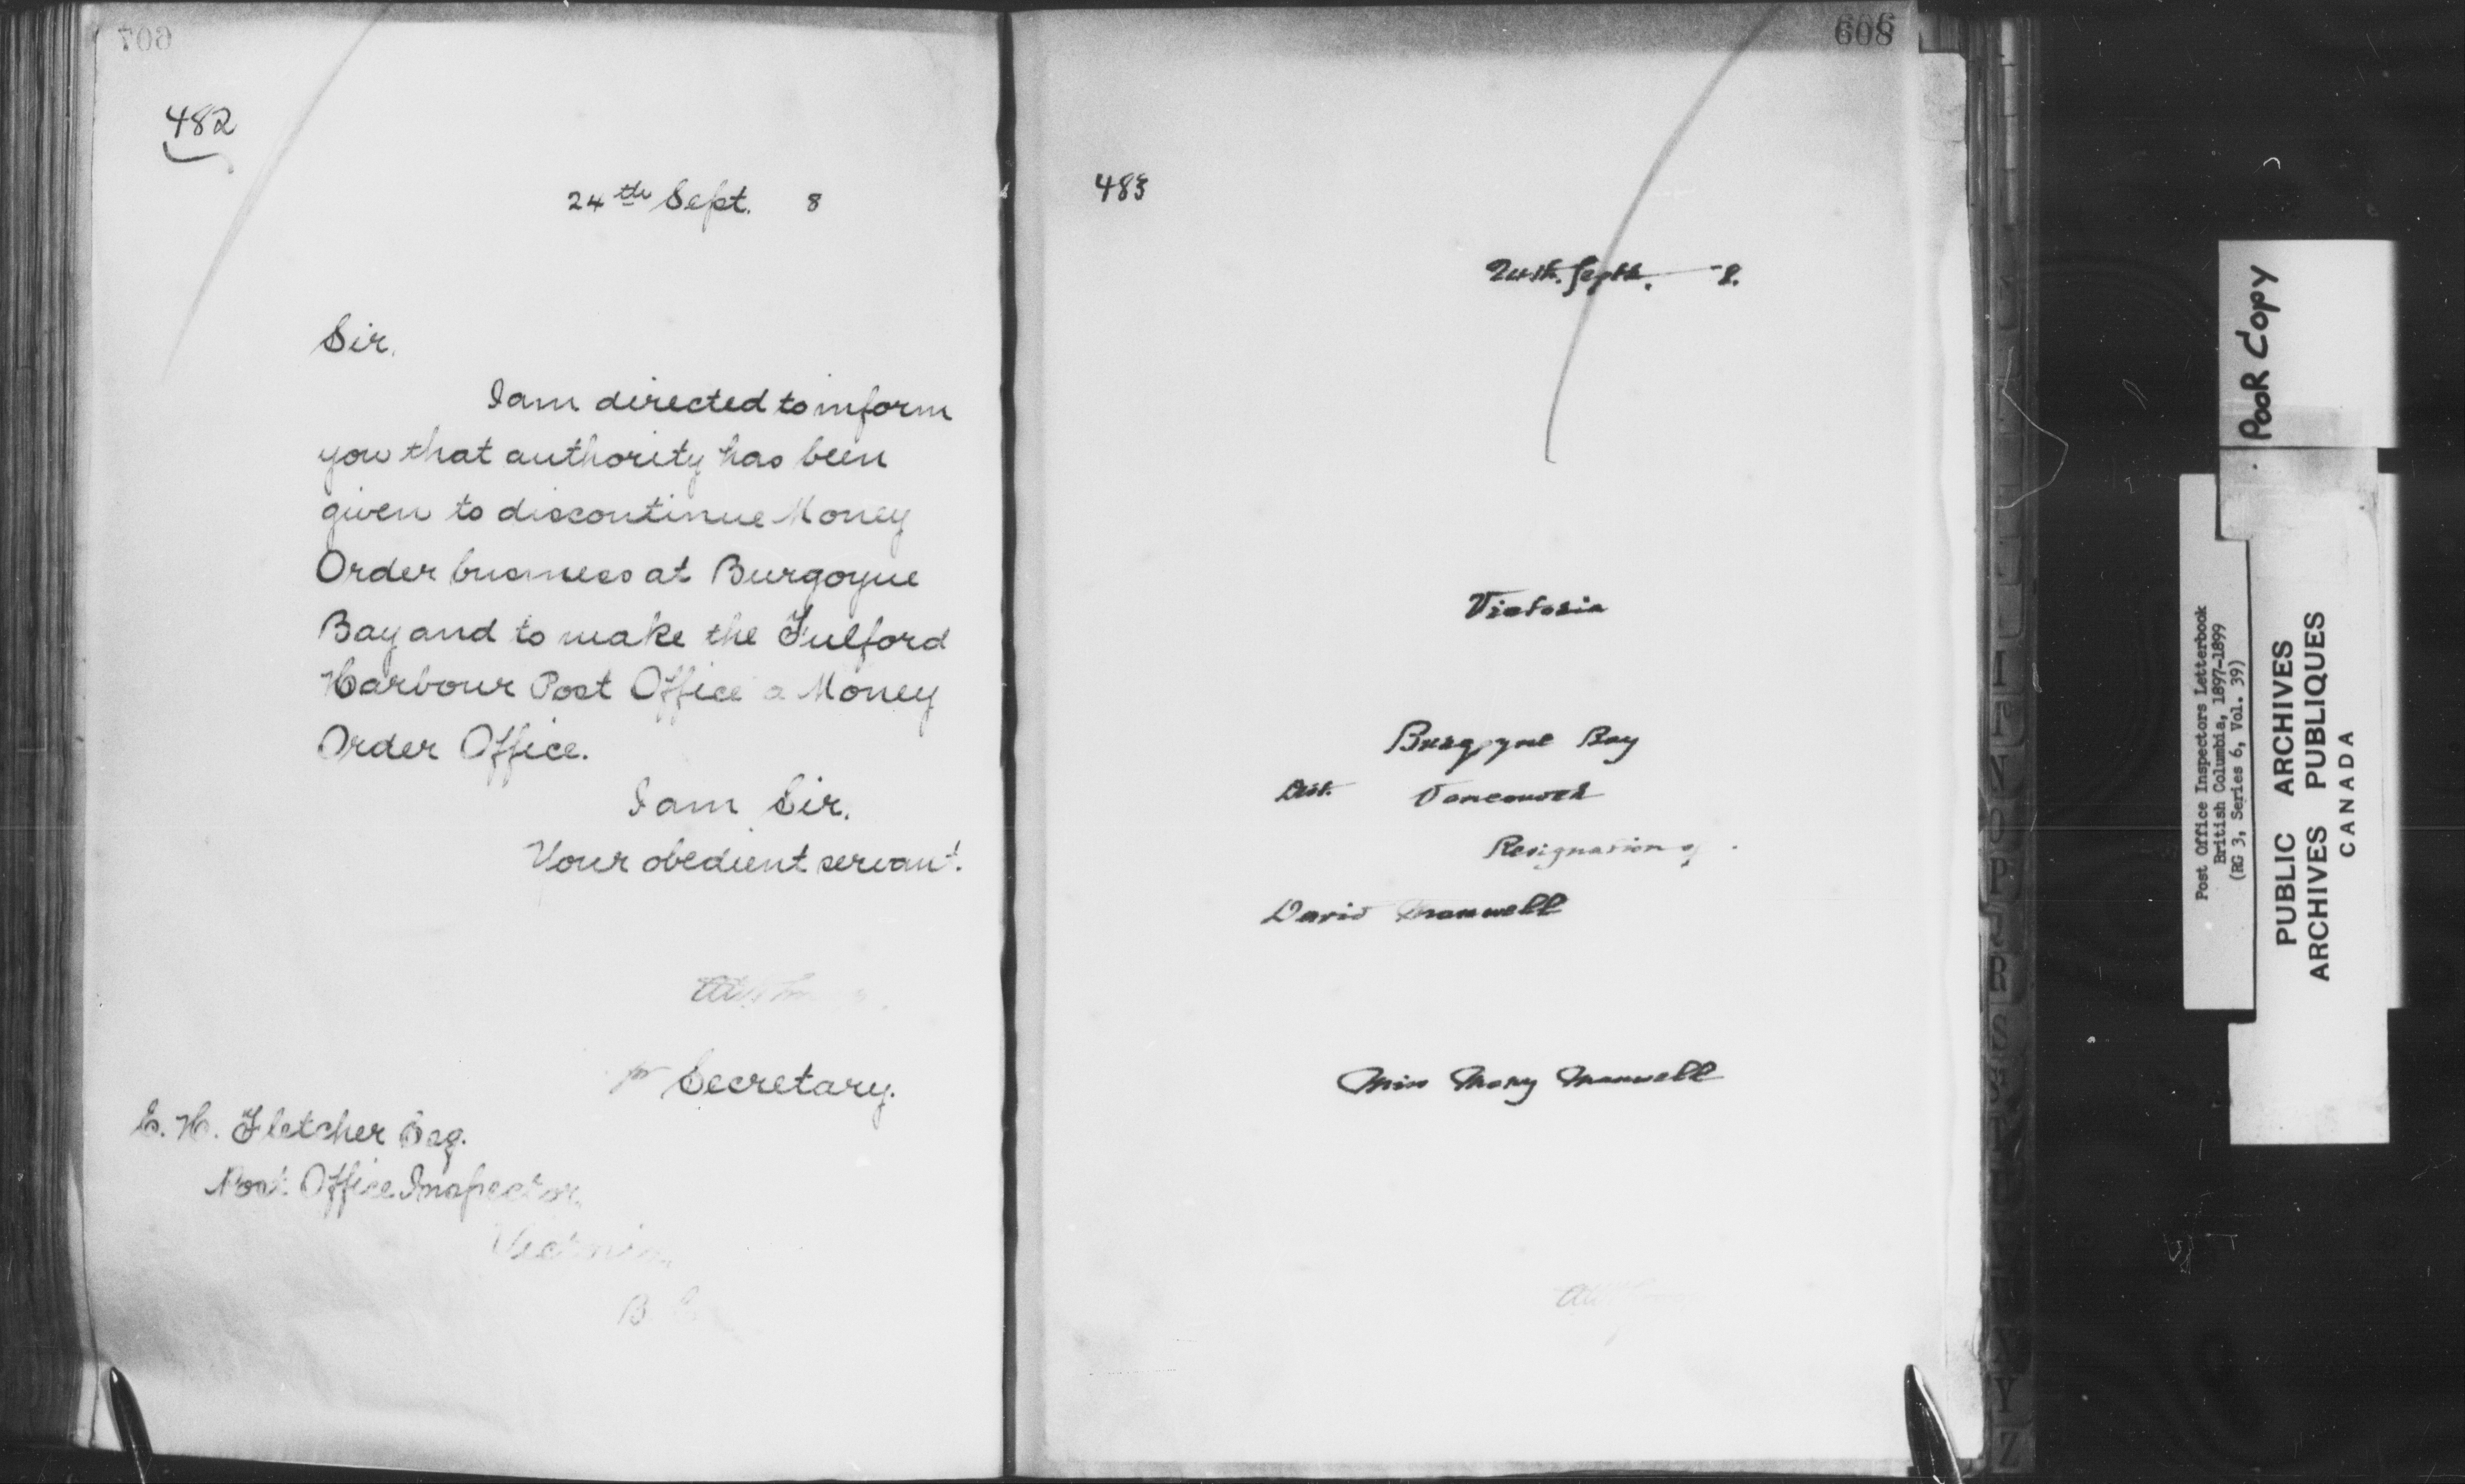 607
482
24th Sept. 8
Sir,
I am directed to inform
you that authority has been
given to discontinue Money
Order business at Burgoyne
Bay and to make the Fulford
Harbour Post Office a Money
Order Office.
I am Sir,
Your obedient servant.
for Secretary.
E. H. Fletcher Esq.
Post Office Inspector,
Victoria,
B C
608
483
24th. Septr. 8.
Victoria
Burgoyne Bay
Dist. Vancouver
Resignation of
David Maxwell
Miss Mary Maxwell
Poor Copy
Post Office Inspectors Letterbook
British Columbia, 1897-1899
(RG 3, Series 6, Vol. 39)
PUBLIC ARCHIVES
ARCHIVES PUBLIQUES
CANADA